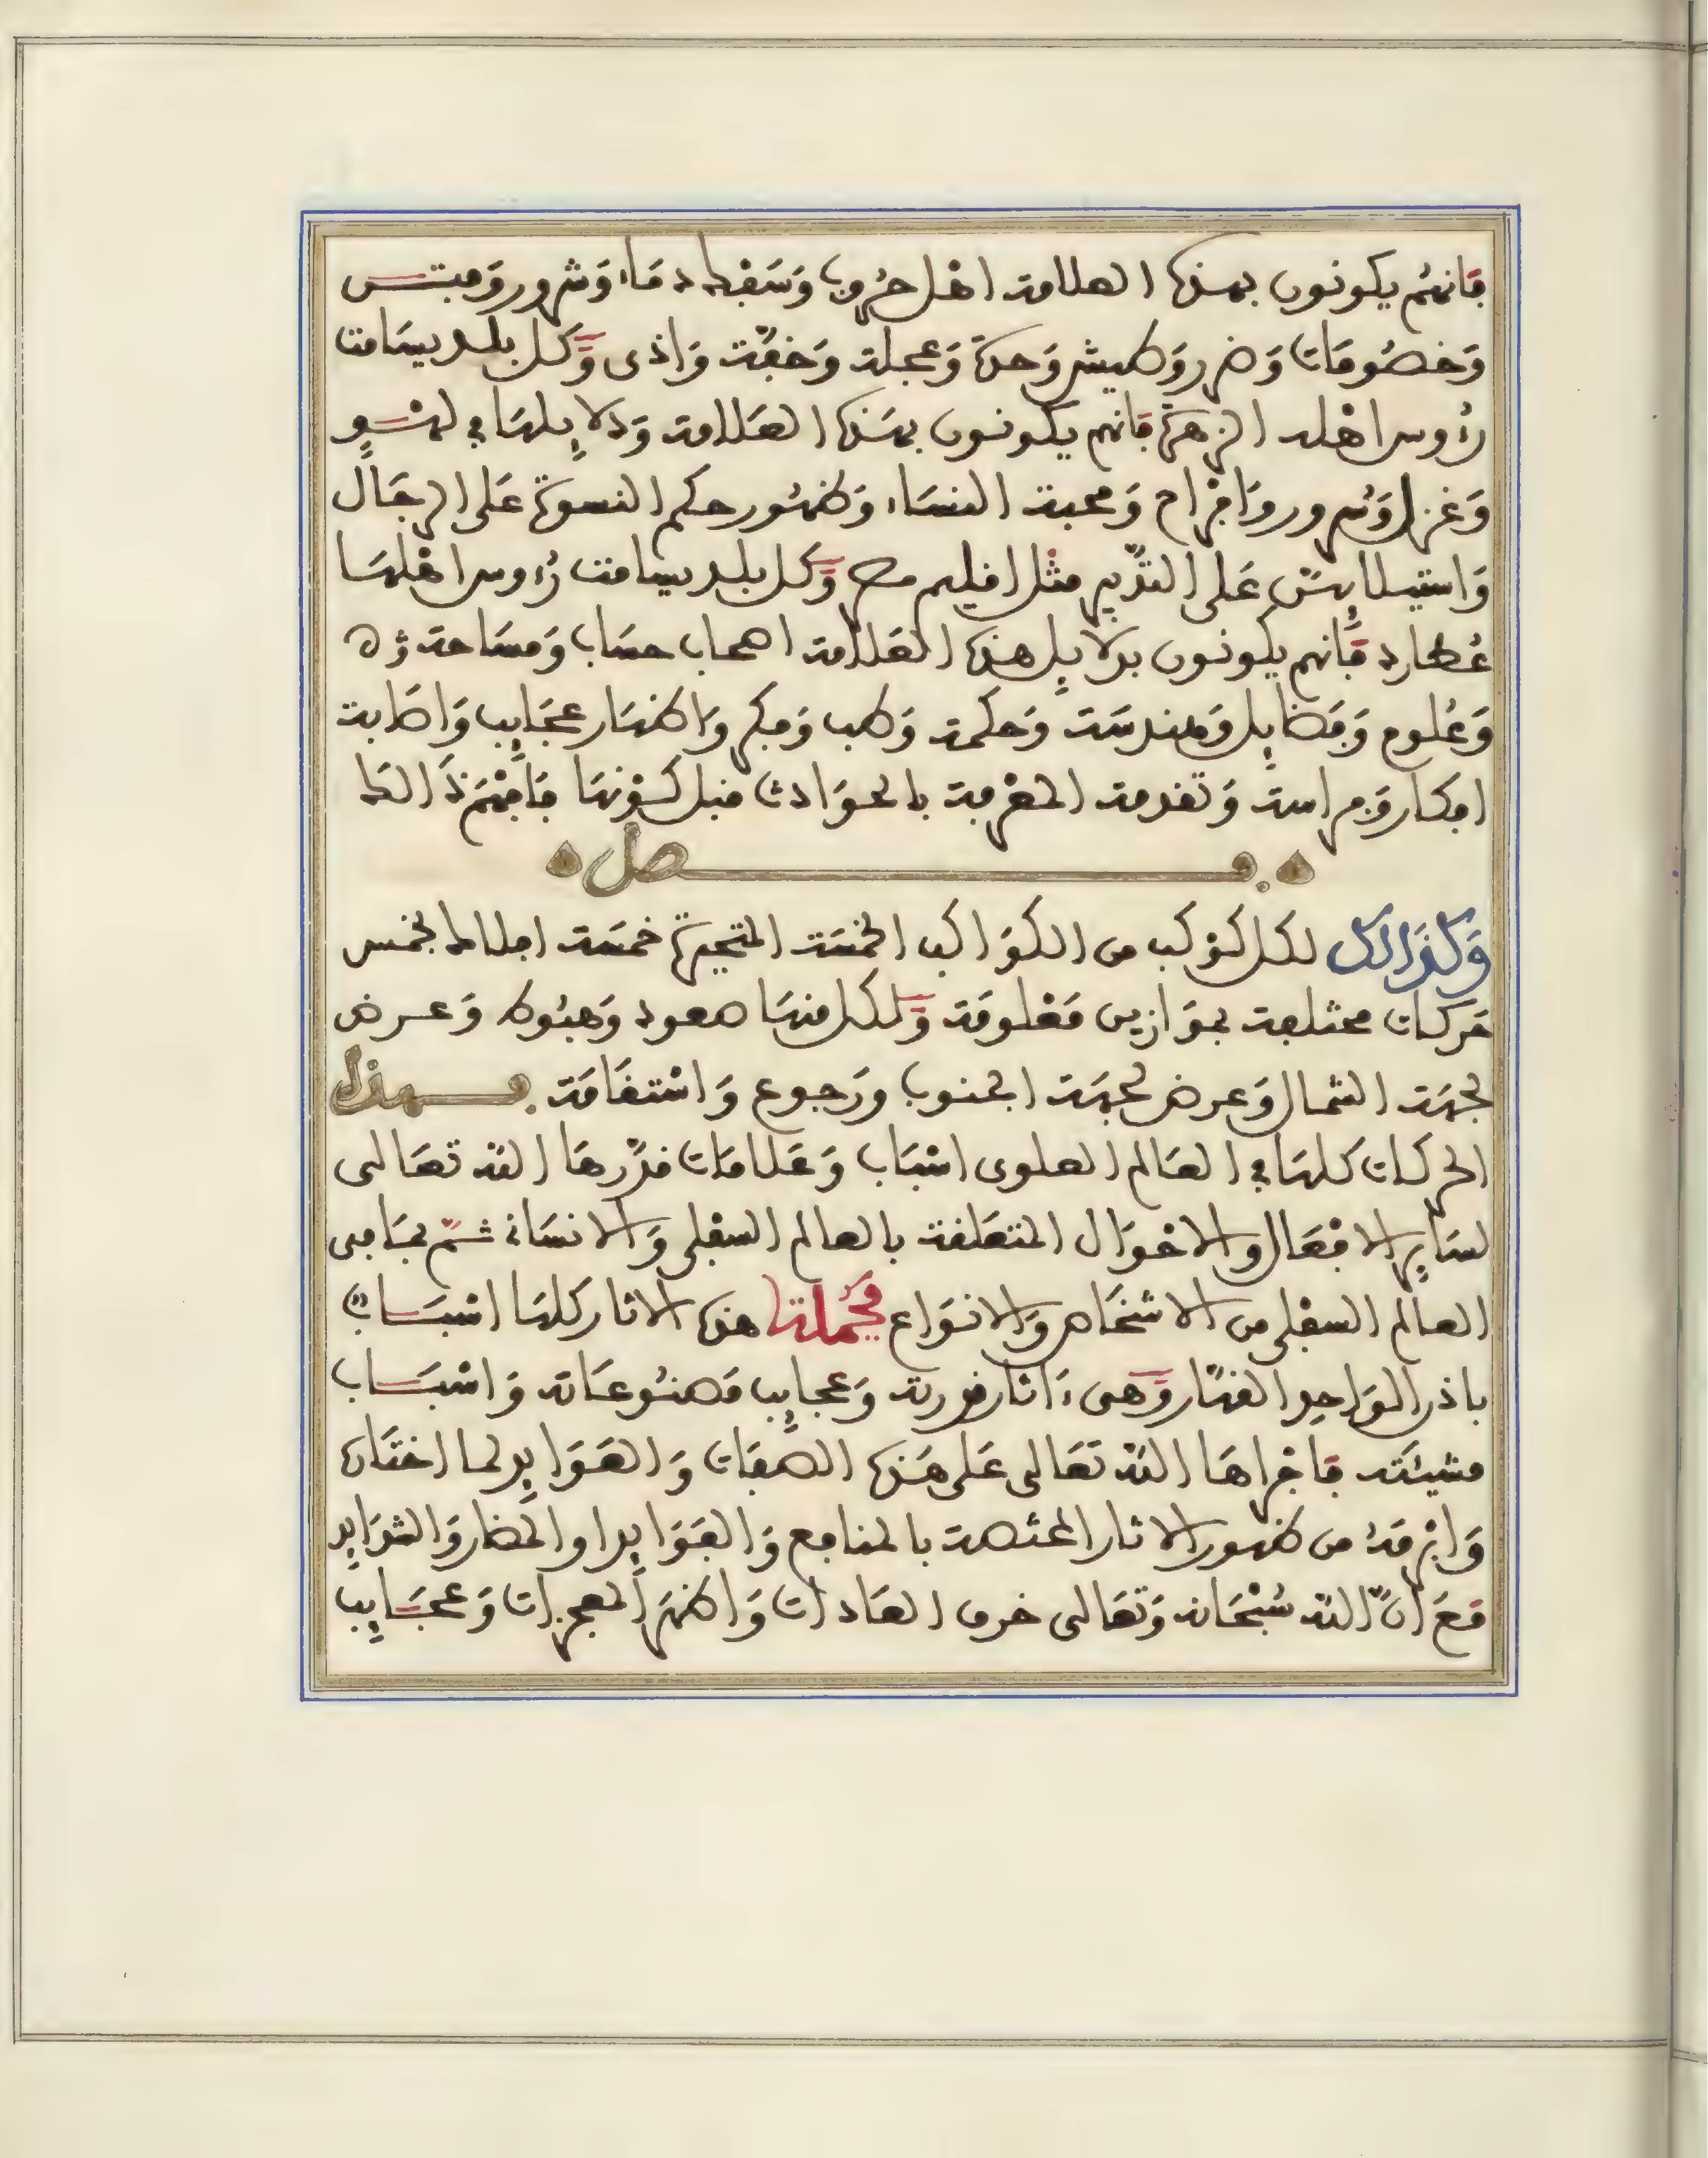 فَانهُم يكونون بهذه العلامة اهل حُروب وَسَفك دمَاء وَشرور وَفتن
وَخصُومَات وَضرر وَطيش وَحدة وَعجلة وَخفّة وَاذى وَكل بلد يسَامت
رُءوس اهله الزهرة فانهم يكونون بهَذه العَلامة وَدلايلهَا في لهْو
وَغزل وَسُرور وَافراح وَمحبة النسَاء وَظهُور حكم النسوة عَلى الرجَال
وَاستيلايهنّ عَلى التدْبير مثْل اقليم مصر وَكل بلد يسامت رُءوس اهْلهَا
عُطارد فَانهم يكونون بدلايل هذه العَلامة اصحاب حسَاب وَمسَاحة
وَعُلوم وَفضَايل وَهندسَة وَحكمة وَطب وَفكر وَاظهَار عجَايب وَاصَابة
افكار وَفراسة وَتقدمة المعْرفة بالحوَادث قبل كوْنهَا فافْهَم ذَالك
فصل
وَكذَالك لكل كوْكب من الكوَاكب الخمسَة المتحيرة خمسَة افلاك بخمس
حَركات مختلفة بموَازين مَعْلومَة وَلكل منهَا صعود وَهبُوط وَعرض
لجهَة الشمال وَعرض لجهَة الجنوب ورَجوع وَاسْتقَامَة فهذه
الحركات كلهَا في العَالم العلوى اسْبَاب وَعَلامَات قدّرهَا الله تعَالى
لسَاير الافعَال والاحْوَال المتعَلقة بالعالم السفْلى وَالانسَانى ثمّ بمَا فى
العالم السفْلى من الاشخَاص وَالانوَاع فجُملة هذه الاثار كلهَا اسْبَاب
باذن الوَاحِد القهّار وَهى ءَاثار قدرته وَعجايب مَصنُوعَاته وَاسْبَاب
مشيئته فَاجْراهَا الله تعَالى عَلى هَذه الصفَات وَالعَوَايد لما اختَاره
وَابْرمَهُ من ظهور الاثار المختصة بالمنافع وَالفَوَايد او المضار وَالشوَايد
مَعَ انّ الله سُبْحَانه وَتعَالى خرق العَادات وَاظهَر المعجزات وَعجَايب